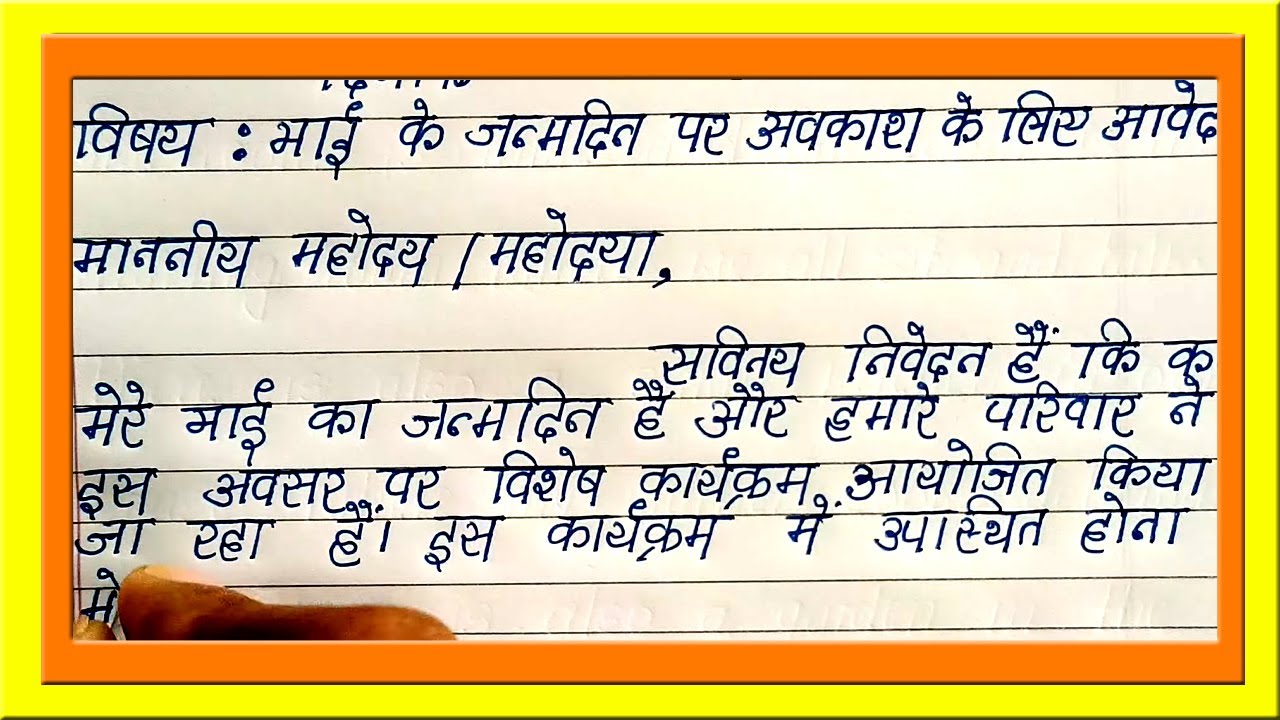 विषय : भाई के जन्मदिन पर अवकाश के लिए आवेद
माननीय महोदय / महोदया,
सविनय निवेदन हैं कि
मेरे भाई का जन्मदिन है और हमारे परिवार ने
इस अवसर पर विशेष कार्यक्रम आयोजित किया
जा रहा हैं। इस कार्यक्रम में उपस्थित होना